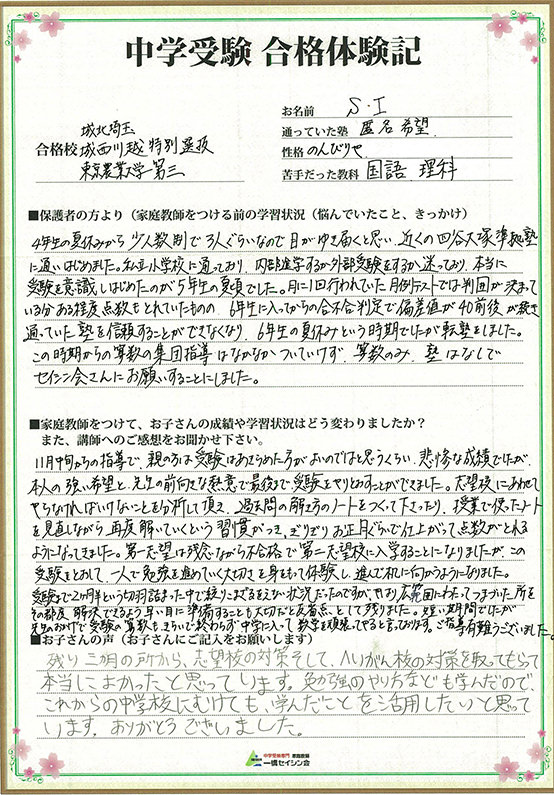 中学受験 合格体験記
合格校 城北埼玉
城西川越 特別選抜
東京農業大学 第三
お名前 S・I
通っていた塾 匿名希望
性格 のんびりや
苦手だった教科 国語 理科
■保護者の方より（家庭教師をつける前の学習状況（悩んでいたこと、きっかけ）
4年生の夏休みから 少人数制で 3人ぐらいなので 目がゆき届くと思い、近くの四谷大塚準拠塾
に通いはじめました。私立小学校に通っており、内部進学するか外部受験をするか迷っており、本当に
受験を意識しはじめたのが5年生の夏頃でした。月に1回行われていた月例テストでは範囲が決まって
いる分ある程度点数もとれていたものの、6年生に入ってからの合不合判定で偏差値が40前後が続き
通っていた塾を信頼することができなくなり、6年生の夏休みという時期でしたが転塾をしました。
この時期からの算数の集団指導はなかなかついていけず、算数のみ、塾はなしで
セイシン会さんにお願いすることにしました。
■家庭教師をつけて、お子さんの成績や学習状況はどう変わりましたか？
また、講師へのご感想をお聞かせ下さい。
11月中旬からの指導で、親の方は受験はあきらめた方がよいのではと思うくらい、悲惨な成績でしたが、
本人の強い希望と先生の前向きな熱意で最後まで受験をやりとおすことができました。志望校にあわせて
やらなければいけないことを分析して頂き、過去問の解き方のノートをつくって下さったり、授業で使ったノート
を見直しながら再度解いていくという習慣がつき、ぎりぎりお正月ぐらいで仕上がって点数がとれる
ようになってきました。第一志望は残念ながら不合格で第二志望校に入学することになりましたが、この
受験をとおして、一人で勉強を進めていく大切さを身をもって体験し、進んで机に向かうようになりました。
受験まで2ヶ月半という切羽詰まった中で絞りこまざるをえない状況だったのですが、やはり広範囲にわたってつまづいた所を
その都度、解決できるよう早い目に準備することも大切だと反省点として残りました。短い期間でしたが
先生のおかげで受験の算数もきらいで終わらず中学に入って数学を頑張ってやると言っております。ご指導有難うございました。
■お子さんの声（お子さんにご記入をお願いします）
残り三ヵ月の所から、志望校の対策そして、へいがん校の対策を取ってもらって
本当によかったと思っています。勉強のやり方なども学んだので、
これからの中学校にむけても、学んだことを活用したいと思って
います。ありがとうございました。
中学受験専門 家庭教師
一橋セイシン会